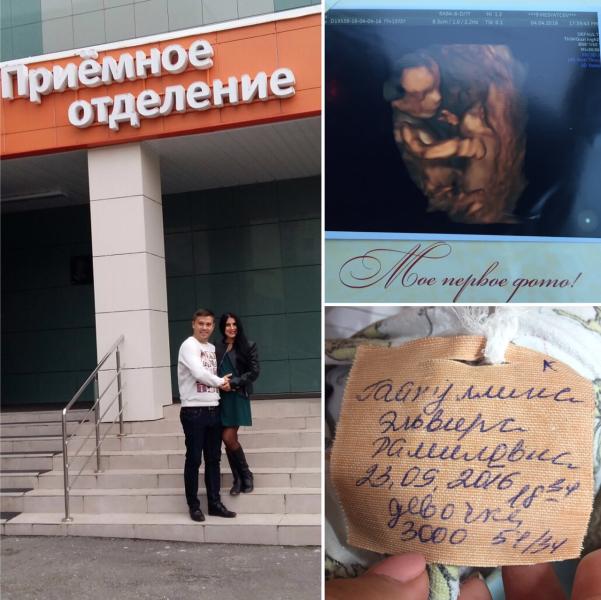 Приёмное
отделение
04.04.2016
Мое первое фото!
Гайнуллина
Эльвира
Рамиловна
23.09.2016
18 34
девочка
3000 51/34